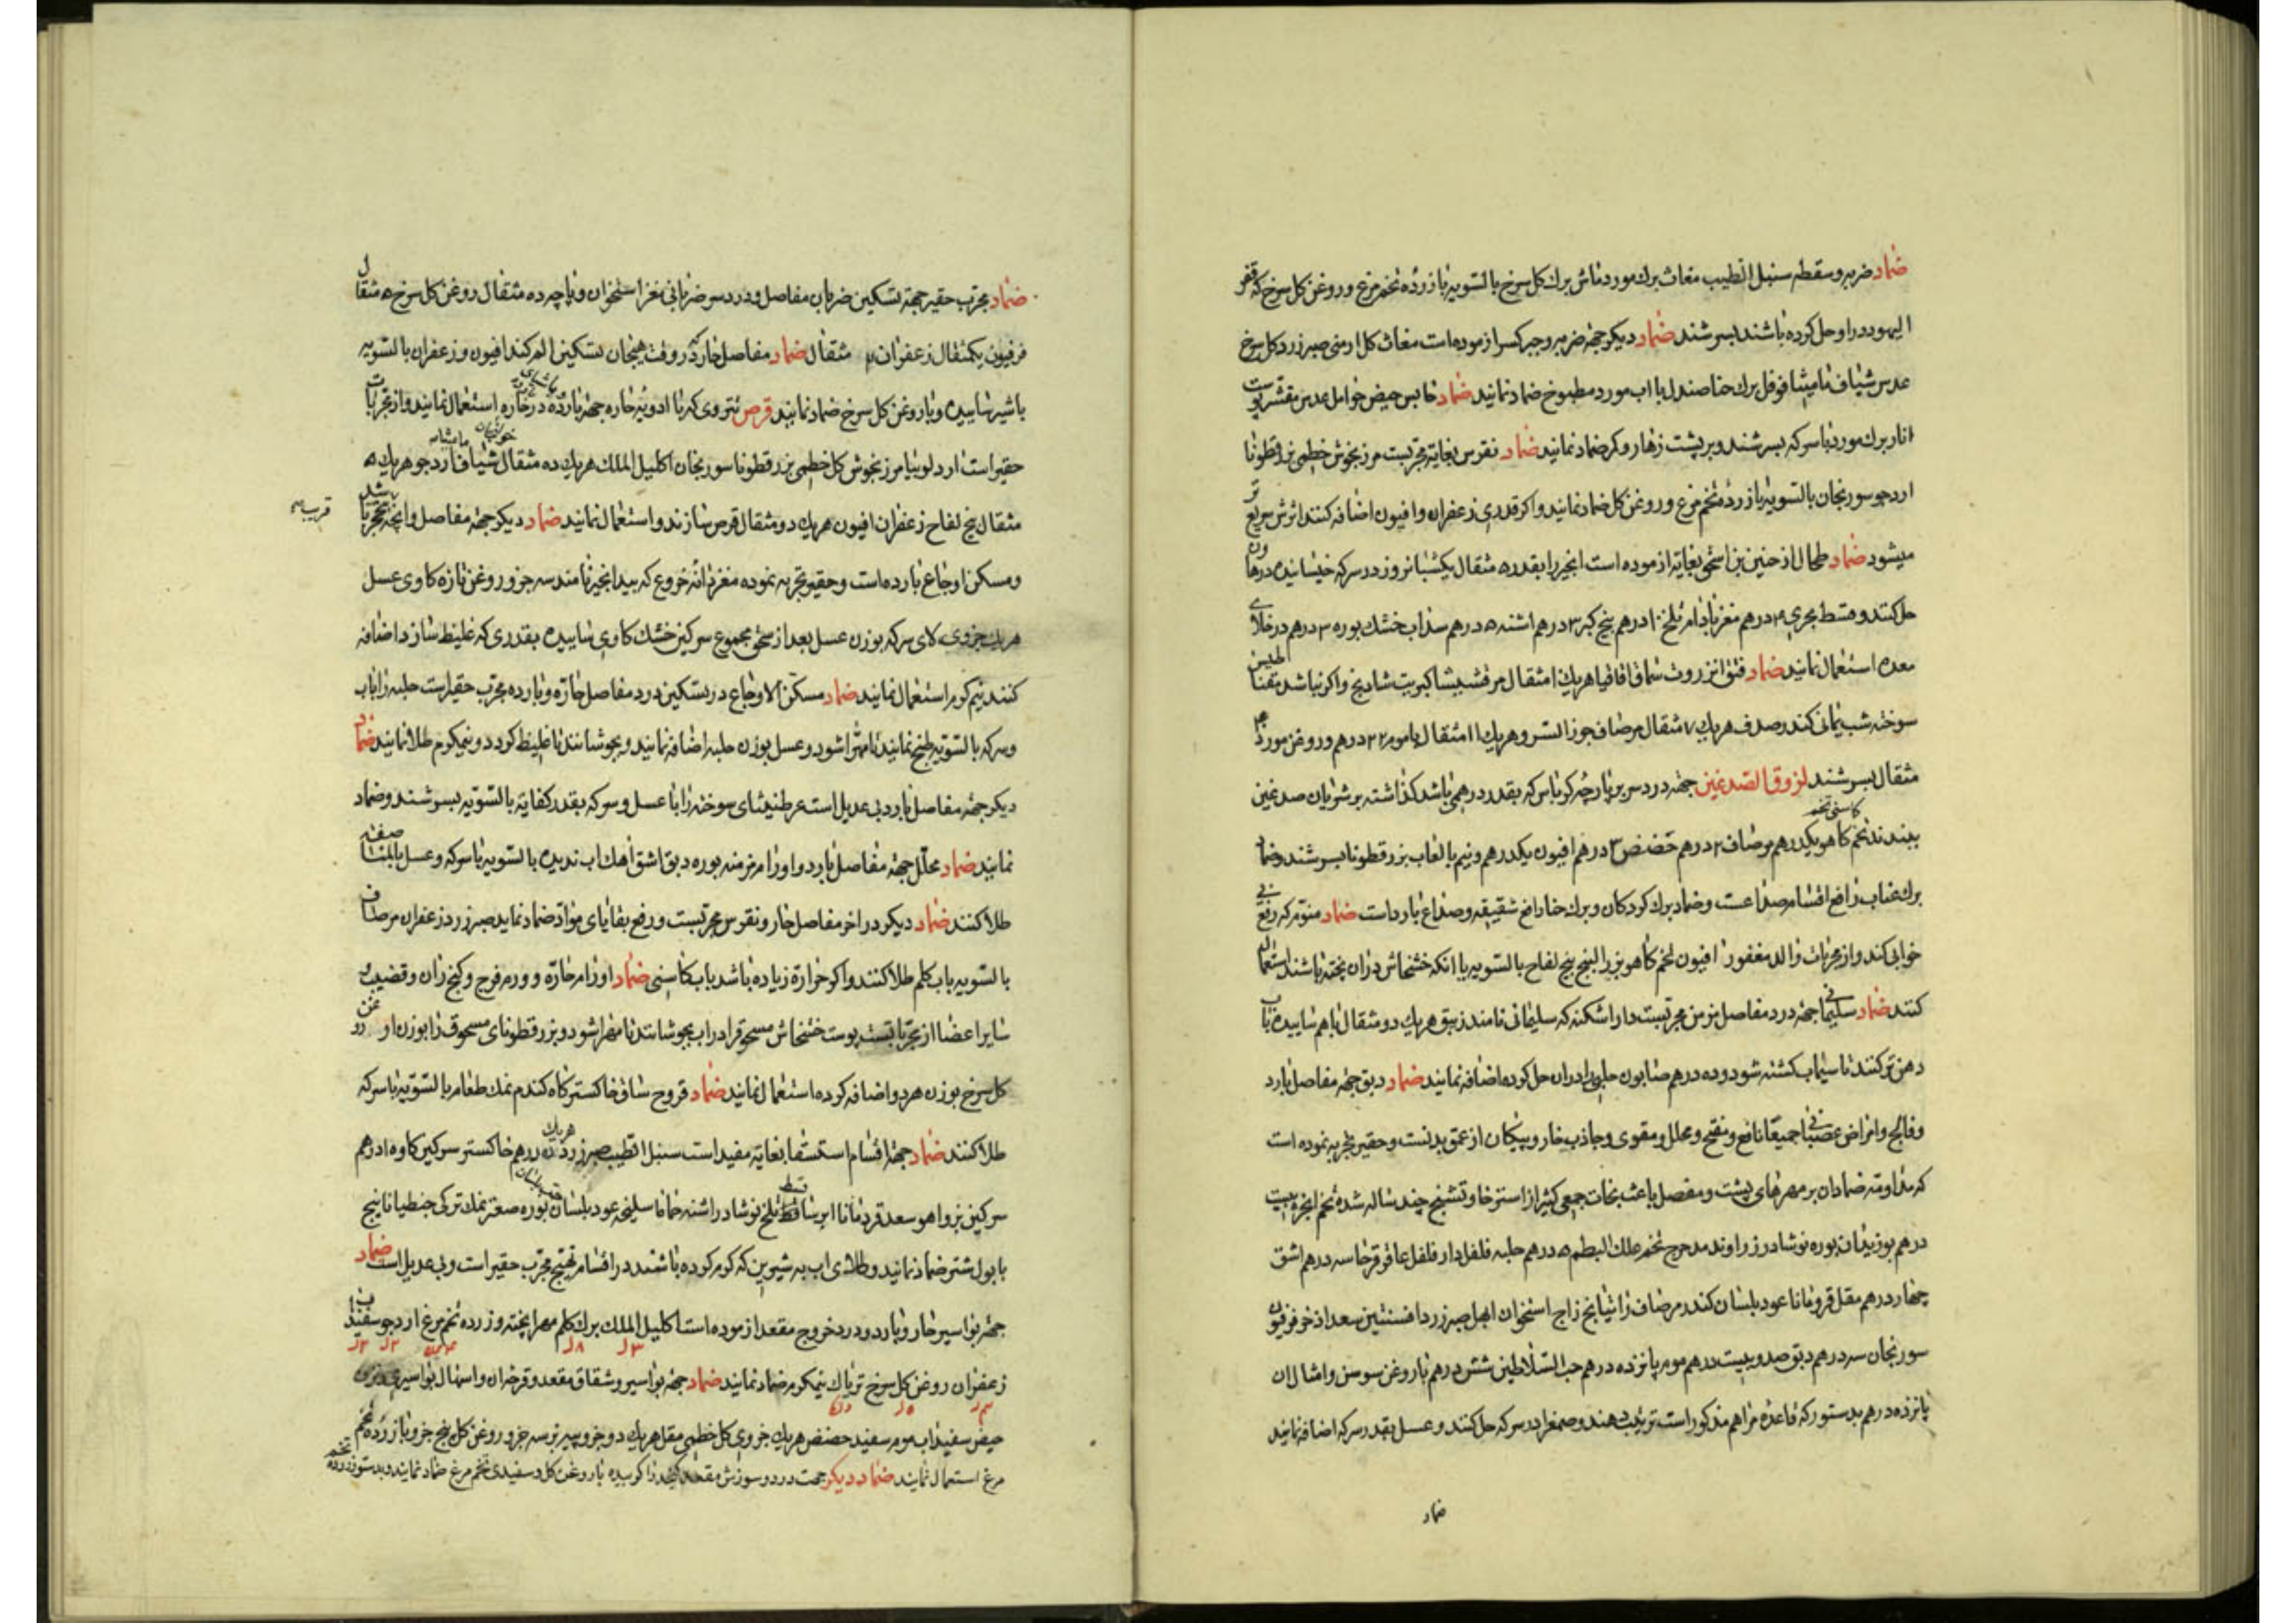 ضماد ضربه و سقطه سنبل الطیب مغاث برك مورد ماش برك کل سرخ بالسویه با زردۀ تخم مرغ و روغن کل سرخ که قفر
الیهود در او حل کرده باشند بسرشند ضماد دیکر جهة ضربه و جبر کسر ازموده است مغاث کل ارمنی صبر زرد کل سرخ
عدس شیاف مامیثا فوفل برك حنا صندل با اب مورد مطبوخ ضماد نمایند ضماد حابس حیض حوامل عدس مقشر پوست
انار برك مورد با سرکه بسرشند و بر پشت زهار و کمر ضماد نمایند ضماد نقرس بغایة مجربست مرزنجوش خطمی بزرقطونا
ارد جو سورنجان بالسویه با زردۀ تخم مرغ و روغن کل ضماد نمایند و اکر قدری زعفران و افیون اضافه کنند اثرش سریع تر
میشود ضماد طحال از حنین بن اسحق بغایة ازموده است انجیر را بقدر ۵ مثقال یکشبانروز در سرکه خیسانیده در هاون
حل کنند و قسط بحری ۴ درهم مغز بادام تلخ ۱۰ درهم بیخ کبر ۳ درهم اشنه ۵ درهم سداب خشك بوره ۳ درهم در خلای
معده استعمال نمایند ضماد فتق انزروت سماق اقاقیا هریك ۱ مثقال مرقشیشا کبریت شادنج و اکر نباشد مغناطیس
سوخته شب یمانی کندر صدف هریك ۷ مثقال مرصاف جوز السرو هریك ۱۱ مثقال با موم ۲۲ درهم و روغن مورد
مثقال بسرشند لزوق الصدغین جهة درد سر بر پارچه کرباس که بقدر درهمی باشد کذاشته بر شریان صدغین
ببندند تخم کاهو یکدرهم مرصاف ۲ درهم حضض ۳ درهم افیون یکدرهم و نیم با لعاب بزرقطونا بسرشند و ضماد
برك عناب رافع اقسام صداعست و ضماد برك کردکان و برك حنا رافع شقیقه و صداع بارد است ضماد منوم که رفع بی
خوابی کند و از مجربات والد مغفور افیون تخم کاهو بزر البنج بیخ لفاح بالسویه با انکه خشخاش در ان پخته باشند استعمال
کنند ضماد سلیمانی جهة درد مفاصل مزمن مجربست دار اشکنه که سلیمانی نامند زیبق هریك دو مثقال با هم ساییده باب
دهن تر کنند تا سیماب کشته شود و ده درهم صابون حلبی را در ان حل کرده اضافه نمایند ضماد دبق جهة مفاصل بارد
و فالج و امراض عصبانی جمیعا نافع و مفتح و محلل و مقوی و جاذب خار و پیکان از عمق بدنست و حقیر تجربه نموده است
که مداومة ضماد ان بر مهرهای پشت و مفصل باعث نجات جمعی کثیر از استرخا و تشنج چند ساله شده تخم انجره بیست
درهم بوزیدان بوره نوشادر زراوند مدحرج تخم علك البطم ۵ درهم حلبه فلفل دار فلفل عاقرقرحا سه درهم اشق
چهار درهم مقل قردمانا عود بلسان کندر مرصاف راتیانج زاج استخوان ابهل صبر زرد افسنتین سعد اذخر فرفیون
سورنجان سه درهم دبق صد و بیست درهم موم پانزده درهم حب السلاطین شش درهم با روغن سوسن و امثال ان
پانزده درهم بدستور که قاعدۀ مراهم مذکور است ترتیب دهند و صمغ را در سرکه حل کنند و عسل بقدر سرکه اضافه نمایند
ضماد
ضماد مجرب حقیر جهة تسکین ضربان مفاصل و درد سر ضربانی مغز استخوان و پاچه ده مثقال روغن کل سرخ ۵ مثقال
فرفیون یکمثقال زعفران ۲ مثقال ضماد مفاصل حار که در وقت هیجان تسکین الم کند افیون و زعفران بالسویه
با شیر ساییده و با روغن کل سرخ ضماد نمایند قرص نتروی که با ادویۀ حاره جهة بارده در حاره استعمال نمایند و از مجربات
حقیر است ارد لوبیا مرزنجوش کل خطمی بزرقطونا سورنجان اکلیل الملك هریك ده مثقال شیاف مامیثا ارد جو هریك ۵
مثقال بیخ لفاح زعفران افیون هریك دو مثقال قرص سازند و استعمال نمایند ضماد دیکر جهة مفاصل و انچه تحجر یا
و مسکن اوجاع بارده است و حقیر تجربه نموده مغز دانۀ خروع که بید انجیر نامند سه جزو روغن تازه کاوی عسل
هریك جزوی لای سرکه بوزن عسل بعد از سحق مجموع سرکین خشك کاوی ساییده بقدری که غلیظ سازد اضافه
کنند نیم کرم استعمال نمایند ضماد مسکن الاوجاع در تسکین درد مفاصل حاره و بارده مجرب حقیر است حلبه را باب
و سرکه بالسویه طبخ نمایند تا مهرا شود و عسل بوزن حلبه اضافه نمایند و بجوشانند تا غلیظ کردد و نیمکرم طلا نمایند ضماد
دیکر جهة مفاصل بارد بی عدیل است عرطنیثای سوخته را با عسل و سرکه بقدر کفایة بالسویه بسرشند و ضماد
نمایند ضماد محلل جهة مفاصل بارد و اورام مزمنه بوره دبق اشق اهك اب ندیده بالسویه با سرکه و عسل بالمناصفه
طلا کنند ضماد دیکر در اخر مفاصل حار و نقرس مجربست و رفع بقایای مواد ضماد نماید صبر زرد زعفران مرصاف
بالسویه باب کلم طلا کنند و اکر حرارة زیاده باشد باب کاسنی ضماد اورام حاره و ورم فرج و کنج ران و قضیب و
سایر اعضا از مجرباتست پوست خشخاش مسحوق را در اب بجوشانند تا مهرا شود و بزرقطونای مسحوق را بوزن او
کل سرخ بوزن هر دو اضافه کرده استعمال نمایند ضماد قروح ساق خاکستر کاه کندم نمك طعام بالسویه با سرکه
طلا کنند ضماد جهة اقسام استسقا بغایة مفید است سنبل الطیب صبر زرد هریك ده درهم خاکستر سرکین کاو ۱۵ درهم
سرکین بز و اهو سعد قردمانا ایرسا قسط تلخ نوشادر اشنه حماما سلیخه عود بلسان بوره صعتر نمك ترکی جنطیانا بیخ
با بول شتر ضماد نمایند و طلای اب به شیرین که کرم کرده باشند در اقسام تهیج مجرب حقیر است و بی عدیل است ضماد
جهة بواسیر حار و بارد و درد خروج مقعد ازموده است اکلیل الملك برك کلم مهرا پخته و زرده تخم مرغ ارد جو سفیداب
زعفران روغن کل سرخ تریاك نیمکرم ضماد نمایند ضماد جهة بواسیر و شقاق مقعد و قرحۀ ان و اسهال بواسیری
حیض سفیداب موم سفید حضض هریك جزوی کل خطمی مقل هریك دو جزو پیه بز سه جزو روغن کل پنج جزو با زردۀ تخم
مرغ استعمال نمایند ضماد دیکر جهت درد و سوزش مقعد کند را کوبیده با روغن کل و سفیدی تخم مرغ ضماد نمایند و بدستور زردۀ تخم